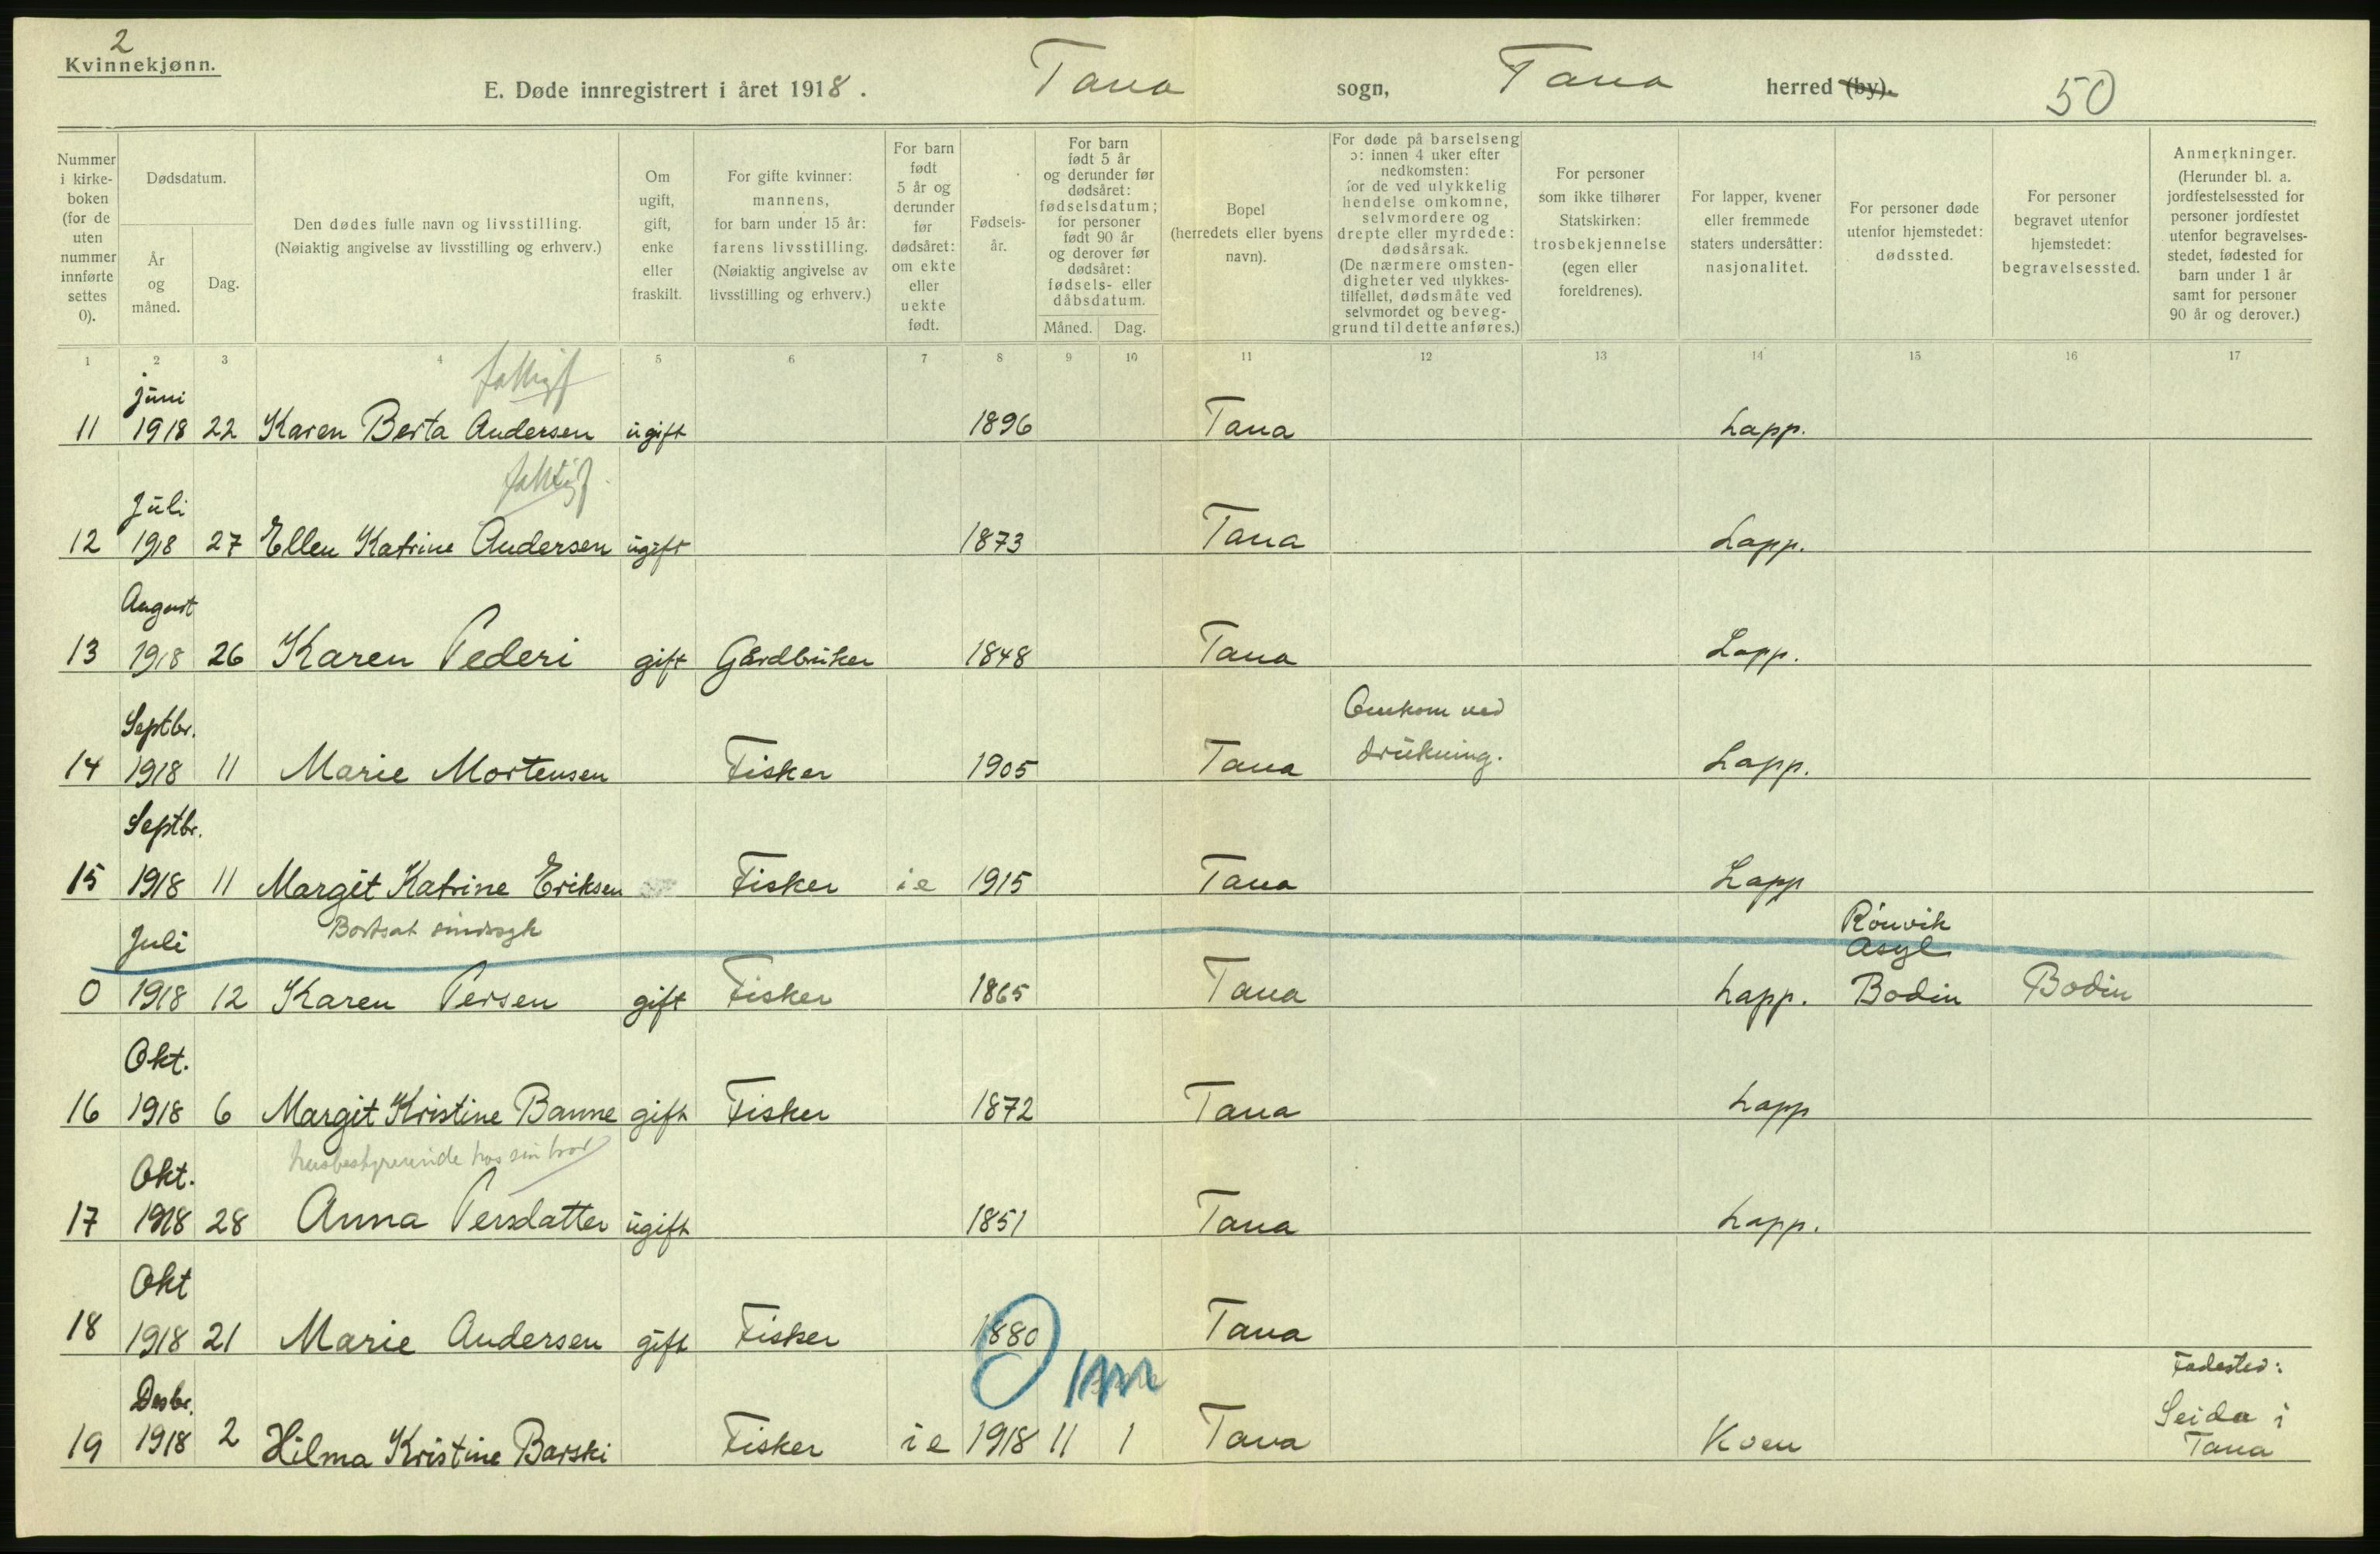 2
Kvinnekjønn.
E. Døde innregistrert i året 1918. Tana sogn, Tana herred (by). 50
Nummer i kirke- boken (for de uten nummer innførte settes 0).
Dødsdatum.
År og måned.
Dag.
Den dødes fulle navn og livsstilling.
(Nøiaktig angivelse av livsstilling og erhverv.)
Om ugift, gift, enke eller fraskilt.
For gifte kvinner: mannens, for barn under 15 år: farens livsstilling. (Nøiaktig angivelse av livsstilling og erhverv.)
For barn født 5 år og derunder før dødsåret: om ekte eller uekte født.
Fødsels- år.
For barn født 5 år og derunder før dødsåret: fødselsdatum; for personer født 90 år og derover før dødsåret: fødsels- eller dåbsdatum.
Måned. Dag.
Bopel (herredets eller byens navn).
For døde på barselseng ɔ: innen 4 uker efter nedkomsten: for de ved ulykkelig hendelse omkomne, selvmordere og drepte eller myrdede: dødsårsak. (De nærmere omsten- digheter ved ulykkes- tilfellet, dødsmåte ved selvmordet og beveg- grund til dette anføres.)
For personer som ikke tilhører Statskirken: trosbekjennelse (egen eller foreldrenes).
For lapper, kvener eller fremmede staters undersåtter: nasjonalitet.
For personer døde utenfor hjemstedet: dødssted.
For personer begravet utenfor hjemstedet: begravelsessted.
Anmerkninger. (Herunder bl. a. jordfestelsessted for personer jordfestet utenfor begravelses- stedet, fødested for barn under 1 år samt for personer 90 år og derover.)
1 2 3 4 5 6 7 8 9 10 11 12 13 14 15 16 17
juni fattigf
11 1918 22 Karen Berta Andersen ugift 1896 Tana Lapp.
Juli fattigf.
12 1918 27 Ellen Katrine Andersen ugift 1873 Tana Lapp.
August
13 1918 26 Karen Pederi gift Gårdbruker 1848 Tana Lapp.
Septbr. Omkom ved
14 1918 11 Marie Mortensen Fisker 1905 Tana drukning. Lapp.
Septbr.
15 1918 11 Margit Katrine Eriksen Fisker ie 1915 Tana Lapp
Juli Bortsat sindssyk Rønvik
Asyl
0 1918 12 Karen Persen gift Fisker 1865 Tana Lapp. Bodin Bodin
Okt.
16 1918 6 Margit Kristine Banne gift Fisker 1872 Tana Lapp
Okt. husbestyrerinde hos sin bror
17 1918 28 Anna Persdatter ugift 1851 Tana Lapp.
Okt
18 1918 21 Marie Andersen gift Fisker 1880 Tana
Desbr. Fødested:
Seida i
19 1918 2 Hilma Kristine Barski Fisker ie 1918 11 1 Tana Kven Tana